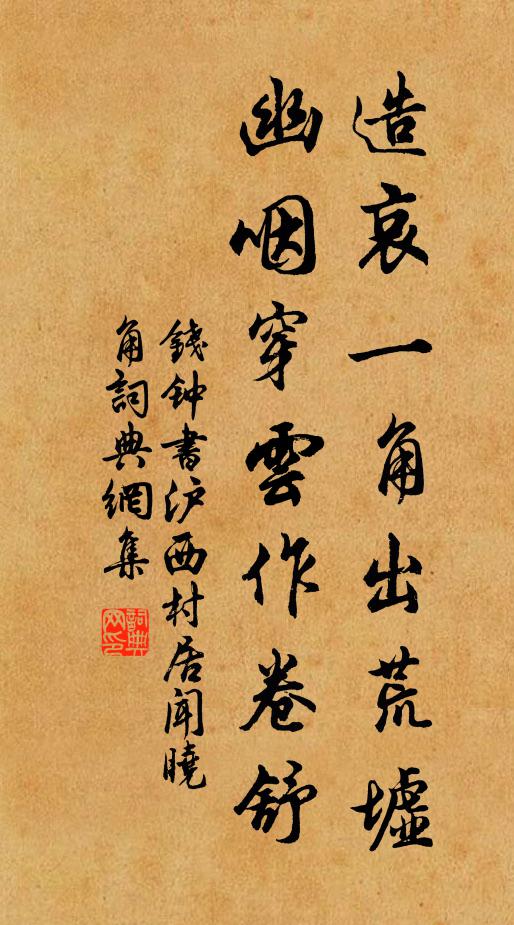 造哀一角出荒墟
幽咽穿雲作卷舒
錢钟書沪西村居闻曉
角詞典網集
詞典网印